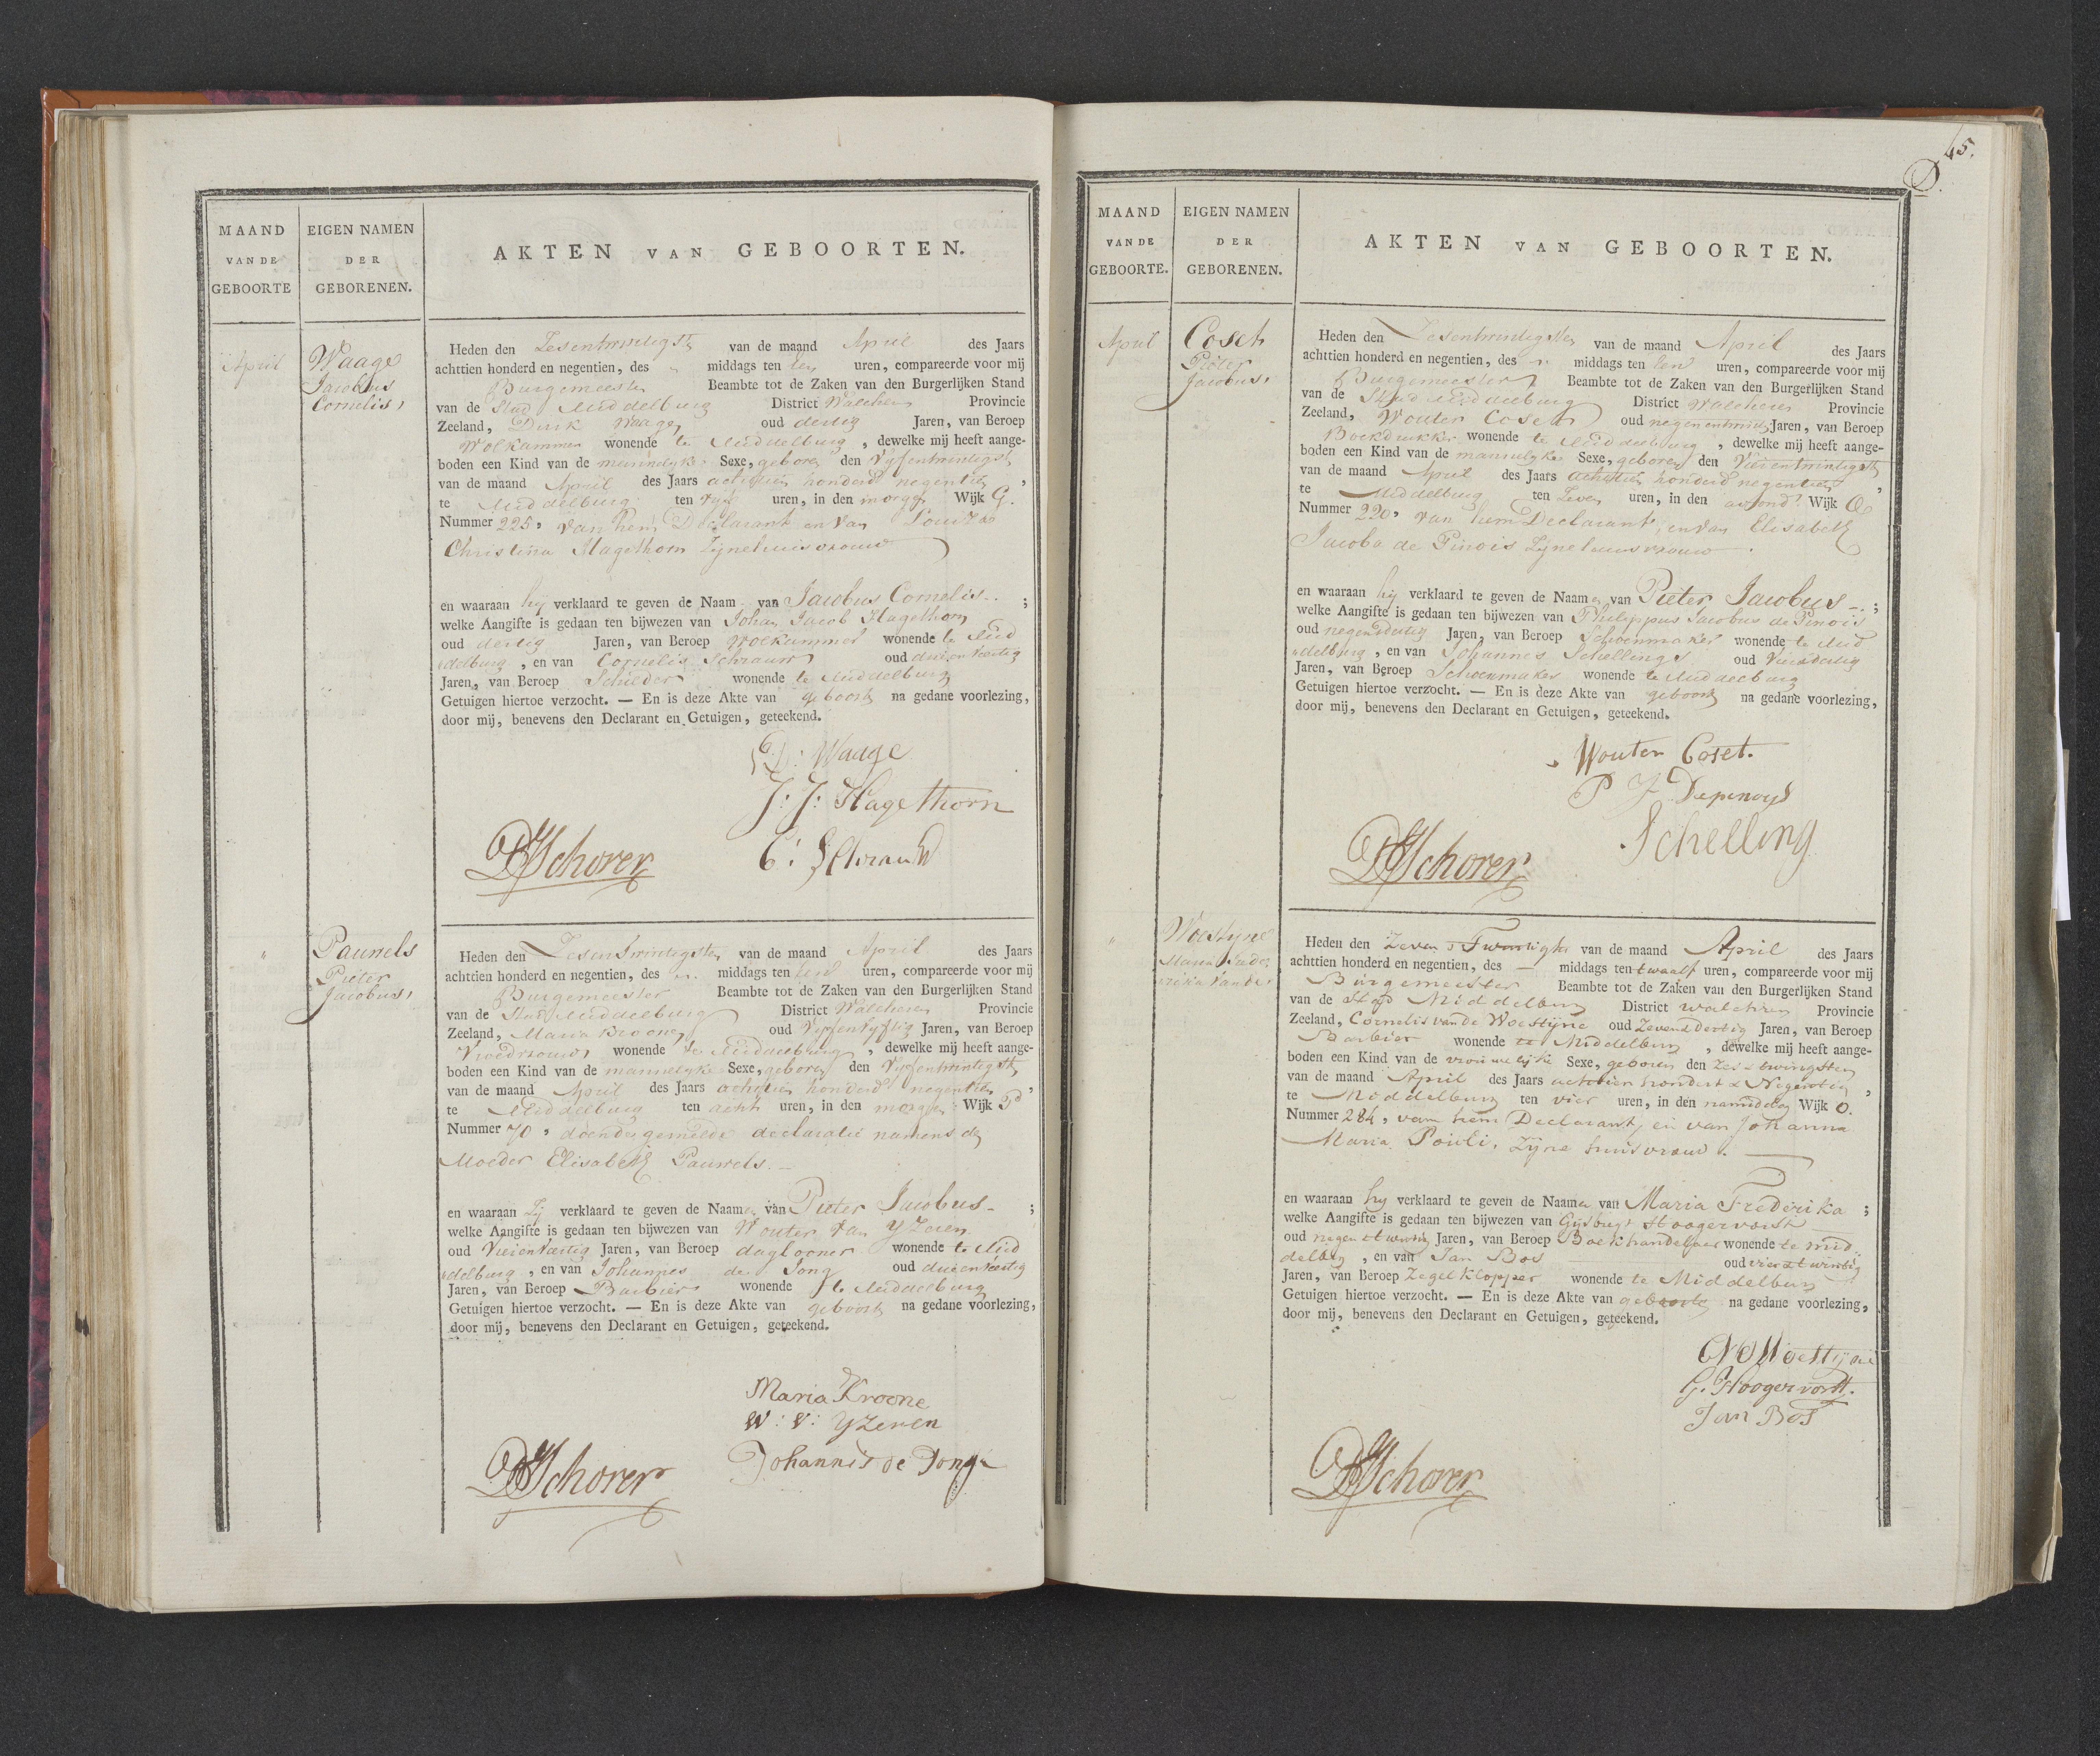 MAAND
VAN DE
GEBOORTE
EIGEN NAMEN
DER
GEBORENEN.
AKTEN VAN GEBOORTEN.
April
Waage
Jacobus
Cornelis,
Heden den Zesentwintigste van de maand April des Jaars
achttien honderd en negentien, des middags ten tien uren, compareerde voor mij
Burgemeester Beambte tot de Zaken van den Burgerlijken Stand
van de Stad Middelburg District Walcheren Provincie
Zeeland, Dirk Waage oud dertig Jaren, van Beroep
Wolkammer wonende te Middelburg, dewelke mij heeft aange-
boden een Kind van de mannelyke Sexe, geboren den Vyfentwintigste
van de maand April des Jaars achttien honderd negentien,
te Middelburg ten vyf uren, in den morgen Wijk G.
Nummer 225, van hem Declarant en van Louiza
Christina Hagethorn Zynehuisvrouw
en waaraan hij verklaard te geven de Naam van Jacobus Cornelis.. ;
welke Aangifte is gedaan ten bijwezen van Johan Jacob Hagethorn
oud dertig Jaren, van Beroep Wolkammer wonende te Mid
delburg, en van Cornelis Schrauw oud drieenveertig
Jaren, van Beroep Schilder wonende te Middelburg
Getuigen hiertoe verzocht. — En is deze Akte van geboorte na gedane voorlezing,
door mij, benevens den Declarant en Getuigen, geteekend.
D: Waage
J: J: Hagethorn
C: Schrauw
Schorer
"
Pauwels
Pieter
Jacobus,
Heden den Zesentwintigste van de maand April des Jaars
achttien honderd en negentien, des middags ten tien uren, compareerde voor mij
Burgemeester Beambte tot de Zaken van den Burgerlijken Stand
van de Stad Middelburg District Walcheren Provincie
Zeeland, Maria Kroone oud Vyfenvyftig Jaren, van Beroep
Vroedvrouw wonende te Middelburg, dewelke mij heeft aange-
boden een Kind van de mannelyke Sexe, geboren den Vyfentwintigste
van de maand April des Jaars achttien honderd negentien,
te Middelburg ten acht uren, in den morgen Wijk P
Nummer 70, doende gemelde declaratie namens de
Moeder Elisabeth Pauwels. —
en waaraan Zij verklaard te geven de Naamen van Pieter Jacobus - ;
welke Aangifte is gedaan ten bijwezen van Wouter van Yzeren
oud Vierenveertig Jaren, van Beroep daglooner wonende te Mid
delburg, en van Johannes de Jong oud drieenveertig
Jaren, van Beroep Barbier wonende te Middelburg
Getuigen hiertoe verzocht. — En is deze Akte van geboorte na gedane voorlezing,
door mij, benevens den Declarant en Getuigen, geteekend.
Maria Kroone
W: V: Yzeren
Johannis de Jonge
Schorer
45.
MAAND
VAN DE
GEBOORTE.
EIGEN NAMEN
DER
GEBORENEN.
AKTEN VAN GEBOORTEN.
April
Coset
Pieter
Jacobus,
Heden den Zesentwintigsten van de maand April des Jaars
achttien honderd en negentien, des middags ten tien uren, compareerde voor mij
Burgemeester Beambte tot de Zaken van den Burgerlijken Stand
van de Stad Middelburg District Walcheren Provincie
Zeeland, Wouter Coset oud negenentwintig Jaren, van Beroep
Boekdrukker wonende te Middelburg, dewelke mij heeft aange-
boden een Kind van de mannelyke Sexe, geboren den Vierentwintigste
van de maand April des Jaars achttien honderd negentien,
te Middelburg ten Zeven uren, in den avond Wijk
Nummer 220, van hem Declarant, en van Elisabeth
Jacoba de Pinois Zyne huisvrouw.
en waaraan hij verklaard te geven de Naamen van Pieter Jacobus -. ;
welke Aangifte is gedaan ten bijwezen van Philippus Jacobus de Pinois
oud negendertig Jaren, van Beroep Schoenmaker wonende te Mid
delburg, en van Johannes Schellings oud Vierdertig
Jaren, van Beroep Schoenmaker wonende te Middelburg
Getuigen hiertoe verzocht. — En is deze Akte van geboorte na gedane voorlezing,
door mij, benevens den Declarant en Getuigen, geteekend.
Wouter Coset.
P J Depenoys
Schelling
Schorer
"
Woestyne
Maria Frede
rika van de,
Heden den Zeven & Twintigste van de maand April des Jaars
achttien honderd en negentien, des — middags ten twaalf uren, compareerde voor mij
Burgemeester Beambte tot de Zaken van den Burgerlijken Stand
van de Stad Middelburg District Walcheren Provincie
Zeeland, Cornelis van de Woestijne oud Zeven & dertig Jaren, van Beroep
Barbier wonende te Middelburg, dewelke mij heeft aange-
boden een Kind van de vrouwelijke Sexe, geboren den Zes & twingsten
van de maand April des Jaars achttien hondert & Negentien,
te Middelburg ten vier uren, in den namiddag Wijk O.
Nummer 284, van hem Declarant, en van Johanna
Maria Pouli, Zijne huisvrouw. —
en waaraan hij verklaard te geven de Naamen van Maria Frederika ;
welke Aangifte is gedaan ten bijwezen van Gijsbregt Hoogervorst
oud negen & twintig Jaren, van Beroep Boekhandelaar wonende te mid
delbrg, en van Jan Bos oud vier & twintig
Jaren, van Beroep Zegel Klopper wonende te Middelburg
Getuigen hiertoe verzocht. — En is deze Akte van geboorte na gedane voorlezing,
door mij, benevens den Declarant en Getuigen, geteekend.
Woestijne
G. Hoogervorst.
Jan Bos
Schorer